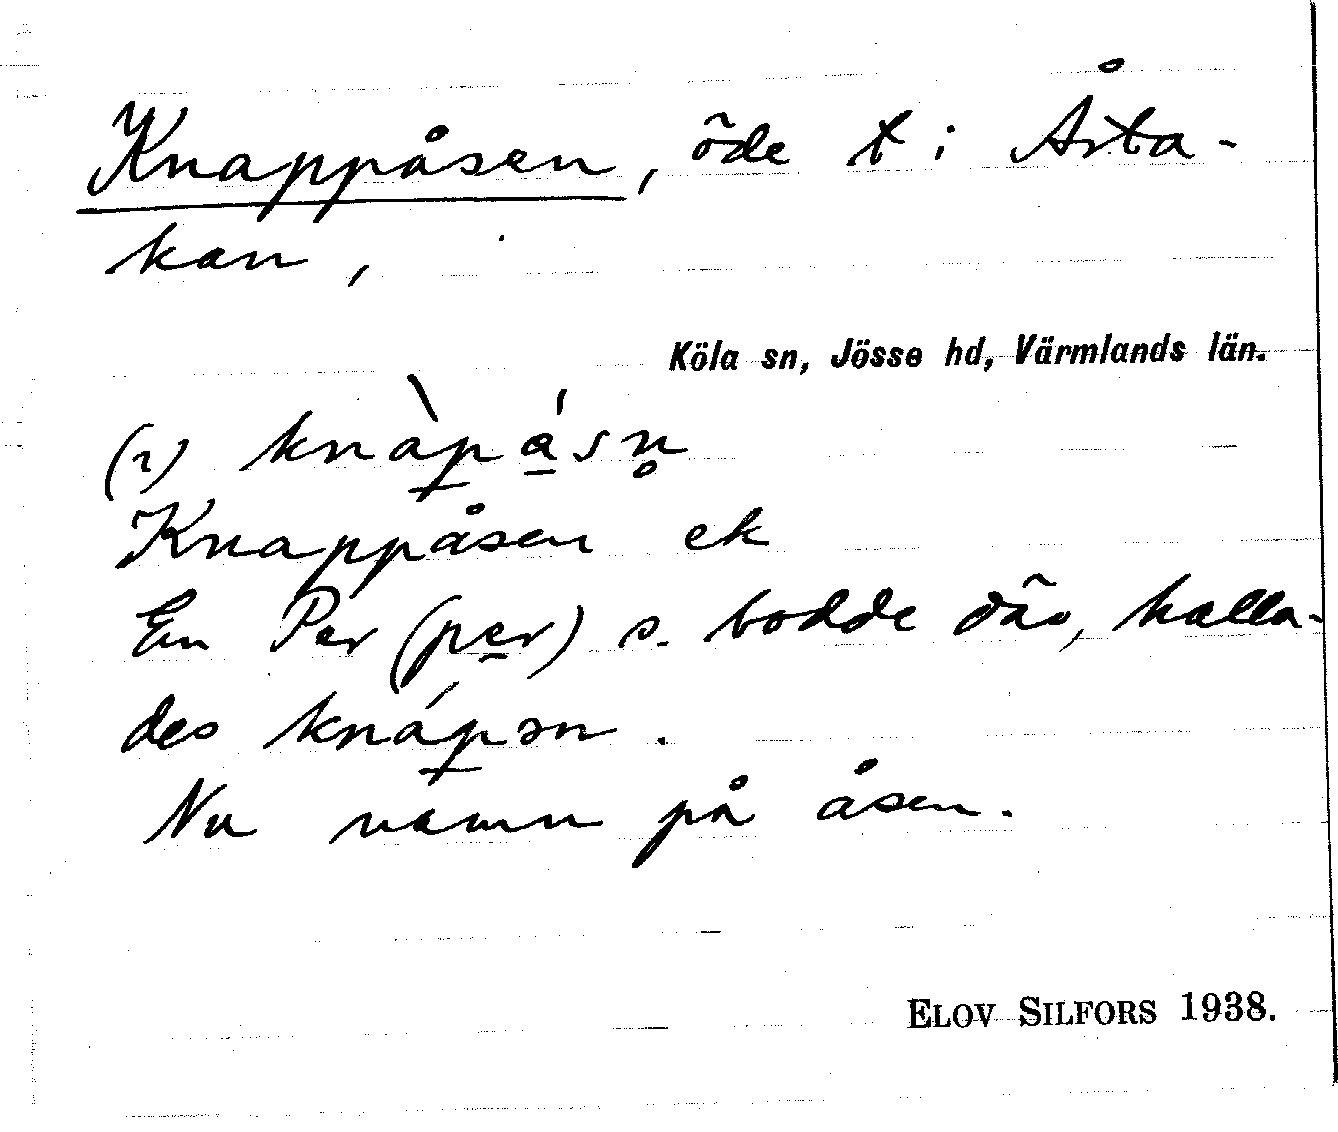 Knappåsen, öde t i Årta-
kan,
Köla sn, Jösse hd, Värmlands län.
(2) knàpá̲sn̥
Knappåsen ek
En Per (pe̲r) s. bodde där, kalla-
des knápsn.
Nu namn på åsen.
ELOV SILFORS 1938.